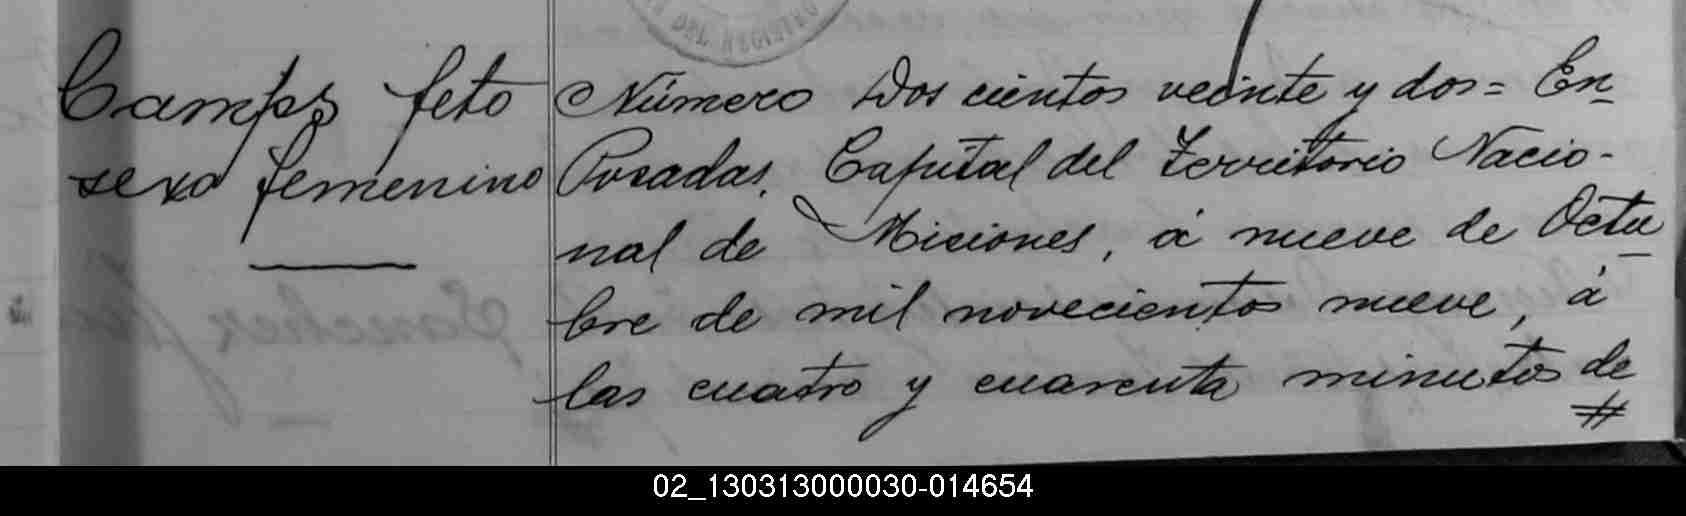 DEL REGISTRO
Camps feto
sexo femenino
Número Dos cientos veinte y dos = En
Posadas, Capital del Territorio Nacio-
nal de Misiones, á nueve de Octu
bre de mil novecientos nueve, á
las cuatro y cuarenta minutos de
02_130313000030-014654